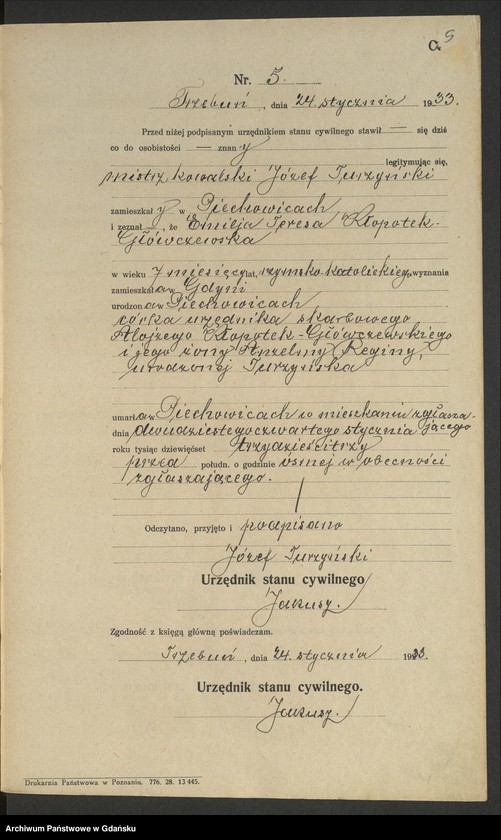 C. 9
Nr. 5.
Trzebuń, dnia 24. stycznia 1933.
Przed niżej podpisanym urzędnikiem stanu cywilnego stawił — się dziś
co do osobistości — znany
legitymując się,
mistrz kowalski Józef Turzyński
zamieszkały w Piechowicach
i zeznał, że Emilja Teresa Kłopotek-
Główczewska
w wieku 7 miesięcy lat, rzymsko katolickiego, wyznania
zamieszkała w Gdyni
urodzona w Piechowicach
córka urzędnika skarbowego
Alojzego Kłopotek-Główczewskiego
i jego żony Anzelmy Reginy,
urodzonej Turzyńska
umarła w Piechowicach w mieszkaniu zgłasza-
jącego
dnia dwudziestegoczwartego stycznia
roku tysiąc dziewięćset trzydzieścitrzy
przed połudn. o godzinie ósmej w obecności
zgłaszającego.
Odczytano, przyjęto i podpisano
Józef Turzyński
Urzędnik stanu cywilnego
Jakusz.
Zgodność z księgą główną poświadczam.
Trzebuń, dnia 24. stycznia 1933.
Urzędnik stanu cywilnego.
Jakusz.
Drukarnia Państwowa w Poznaniu. 776. 28. 13 445.
Archiwum Państwowe w Gdańsku